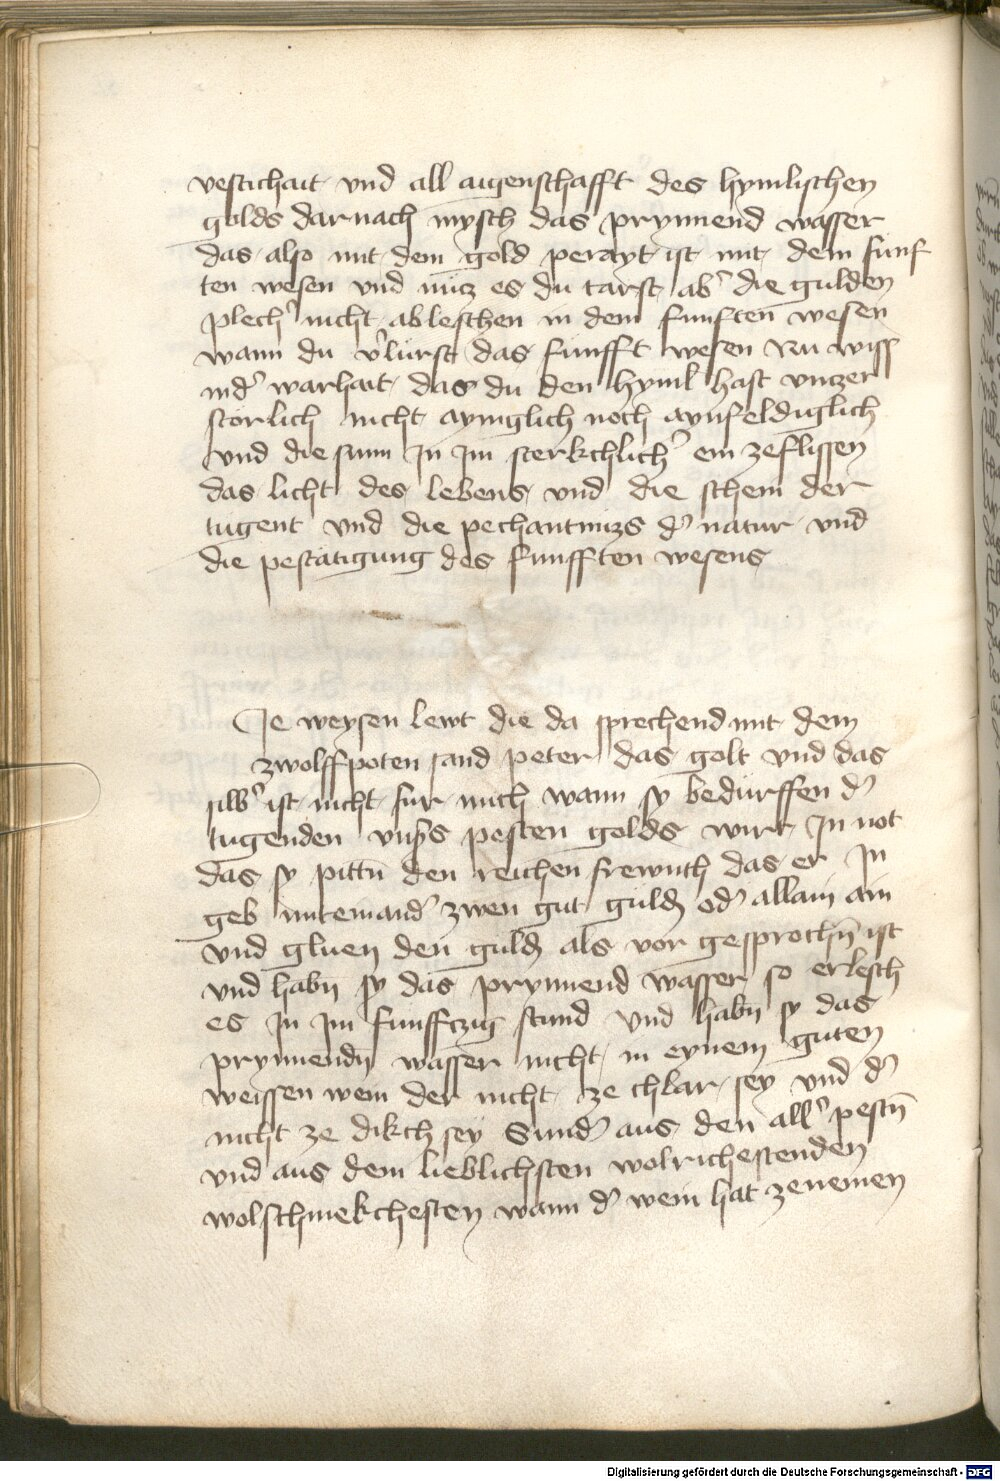 vestichait vnd all aigenschafft des hymlischen
golds darnach mysch das prynnend wasser
das also mit dem gold perayt ist mit dem funf
ten wesen vnd nuͤtz es du tarst abʼ die gulden
plechʼ nicht ableschen in dem funften wesen
wann du vʼlurst das funfft wesen Nu wiss
indʼ warhait das du den hyml hast vnzer
storlich nicht ayniglich noch aynfeldiglich
vnd die sunn In Im sterkchlichʼ ein zeflissen
das licht des lebens vnd die schein der
tugent vnd die pechantnuzs dʼ natur vnd
die pestatigung des funfften wesens
Ie weysen lewt die da sprechend mit dem
zwolffpoten sand peter das golt vnd das
silbʼ ist nicht fur mich wann sy bedurffen dʼ
tugenden vnsʼs pesten golds wirt In not
das sy pittn̄ den reichen frewnth das er In
geb miteinandʼ zwen gut guldn̄ odʼ allain ain
vnd gluen den guldn̄ als vor gesprochn̄ ist
vnd habn̄ sy das prynnend wasser so erlesch
es In Im funffczig stund vnd habn̄ sy das
prynnendn̄ wasser nicht in eynem guten
weissen wein der nicht ze chlar sey vnd dʼ
nicht ze dikch sey Sundʼ aus den allʼ pestn̄
vnd aus dem lieblichsten wolrichestenden
wolschmekchesten wann dʼ wein hat zenemen
Digitalisierung gefördert durch die Deutsche Forschungsgemeinschaft - DFG